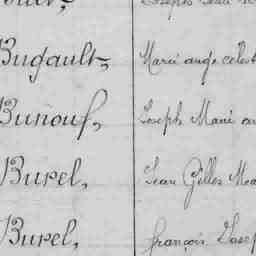 Bugault, Marie ange célest
Bunouf, Joseph Marie
Burel, Jean Gilles
Burel, françois Josep